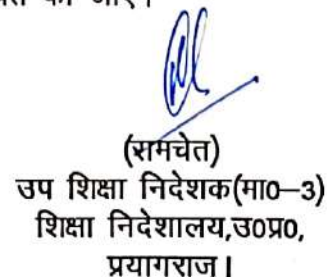 (रामचेत)
उप शिक्षा निदेशक(मा0–3)
शिक्षा निदेशालय,उ0प्र0,
प्रयागराज।